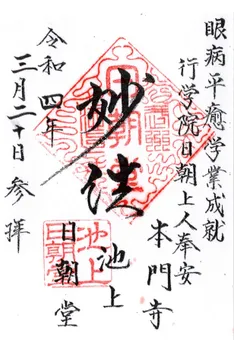 眼病平癒学業成就
行学院日朝上人奉安
本門寺
妙法
池上
日朝堂
令和四年
三月二十日参拝
池上
日朝堂